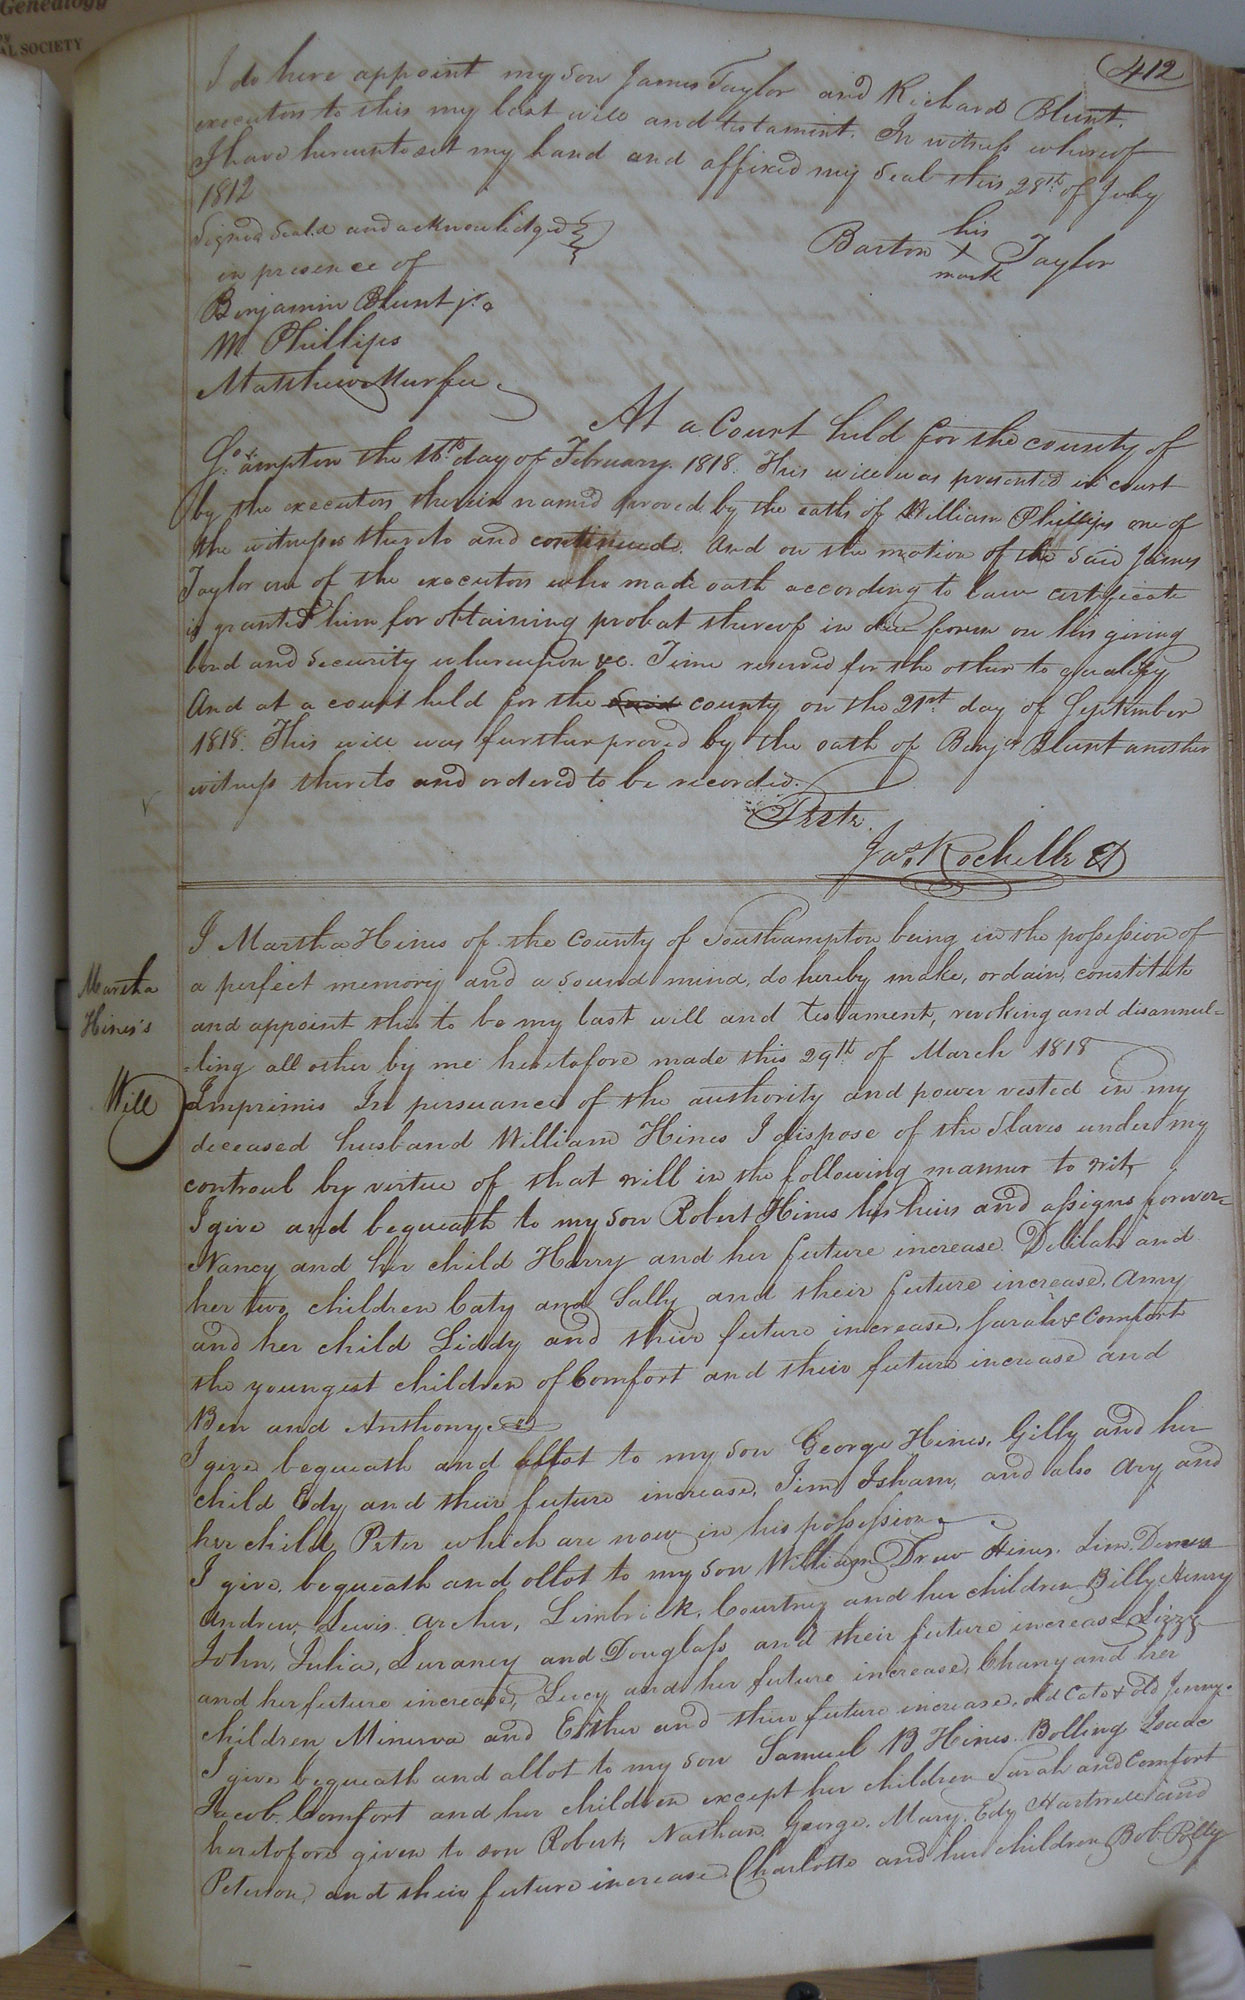 Genealogy
AL SOCIETY
412
I do here appoint my son James Taylor and Richard Blunt
executors to this my last will and testament. In witness whereof
I have hereunto set my hand and affixed my Seal this 28th of July
1812
Signed Seal.d and acknowledged
in presence of
his
Barton + Taylor
mark
Benjamin Blunt jr.
W. Phillips
Matthew Murfee
At a Court held for the county of
So.ampton the 16th day of February 1818. This will was presented in court
by the executors therein named proved by the oath of William Phillips one of
the witnesses thereto and continued. And on the motion of the said James
Taylor one of the executors who made oath according to law certificate
is granted him for obtaining probat thereof in due form on his giving
bond and security whereupon &c. Time reserved for the other to qualify
And at a court held for the said county on the 21st day of September
1818. This will was further proved by the oath of Benja Blunt another
witness thereto and ordered to be recorded.
Teste.
Jas. Rochelle Ct
Martha
Hines's
Will
I Martha Hines of the County of Southampton being in the possession of
a perfect memory and a sound mind, do hereby make, ordain, constitute
and appoint this to be my last will and testament, revoking and disannul-
-ling all other by me heretofore made this 29th of March 1818
Imprimis In persuance of the authority and power vested in my
deceased husband William Hines I dispose of the Slaves under my
controul by virtue of that will in the following manner to wit,
I give and bequeath to my son Robert Hines his heirs and assigns forever
Nancy and her child Harry and her future increase. Delilah and
her two children Caty and Sally and their future increase, Amy
and her child Liddy and their future increase, Sarah & Comfort
the youngest children of Comfort and their future increase and
Ben and Anthony.
I give bequeath and allot to my son George Hines, Gilly and her
child Edy and their future increase, Tim, Isham, and also Avy and
her child Peter which are now in his possession.
I give, bequeath and allot to my son William Drew Hines. Jim,
Andrew, Lewis. Archer, Limbrick, Courtney and her children Billy Henry
John, Julia, Luraney and Douglass and their future increase, Lizzy
and her future increase, Lucy and her future increase, Chany and her
children Minerva and Esther and their future increase, old Cato & old Jenny.
I give bequeath and allot to my son Samuel B Hines. Bolling Isaac
Jacob. Comfort and her children except her children Sarah and Comfort
heretofore given to son Robert, Nathan. George. Mary. Edy Hartwell and
Peterson, and their future increase Charlotte and her children Bob. Polly